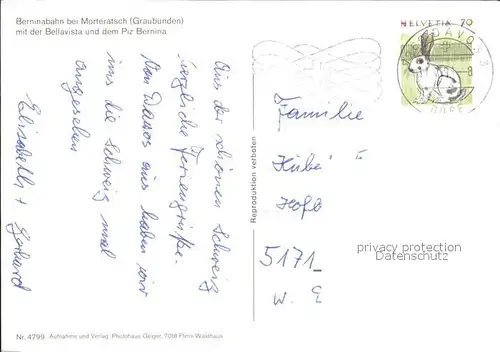 Berninabahn bei Morteratsch (Graubünden)
mit der Bellavista und dem Piz Bernina
Aus der schönen Schweiz
herzliche Feriengrüße.
Von Davos aus haben wir
uns die Schweiz mal
angesehen
Elisabeth + Gerhard
Reproduktion verboten
HELVETIA 70
DAVOS 3
DORF
Familie
Hofb
5171
W. E
privacy protection
Datenschutz
Nr. 4799 Aufnahme und Verlag: Photohaus Geiger, 7018 Flims-Waldhaus